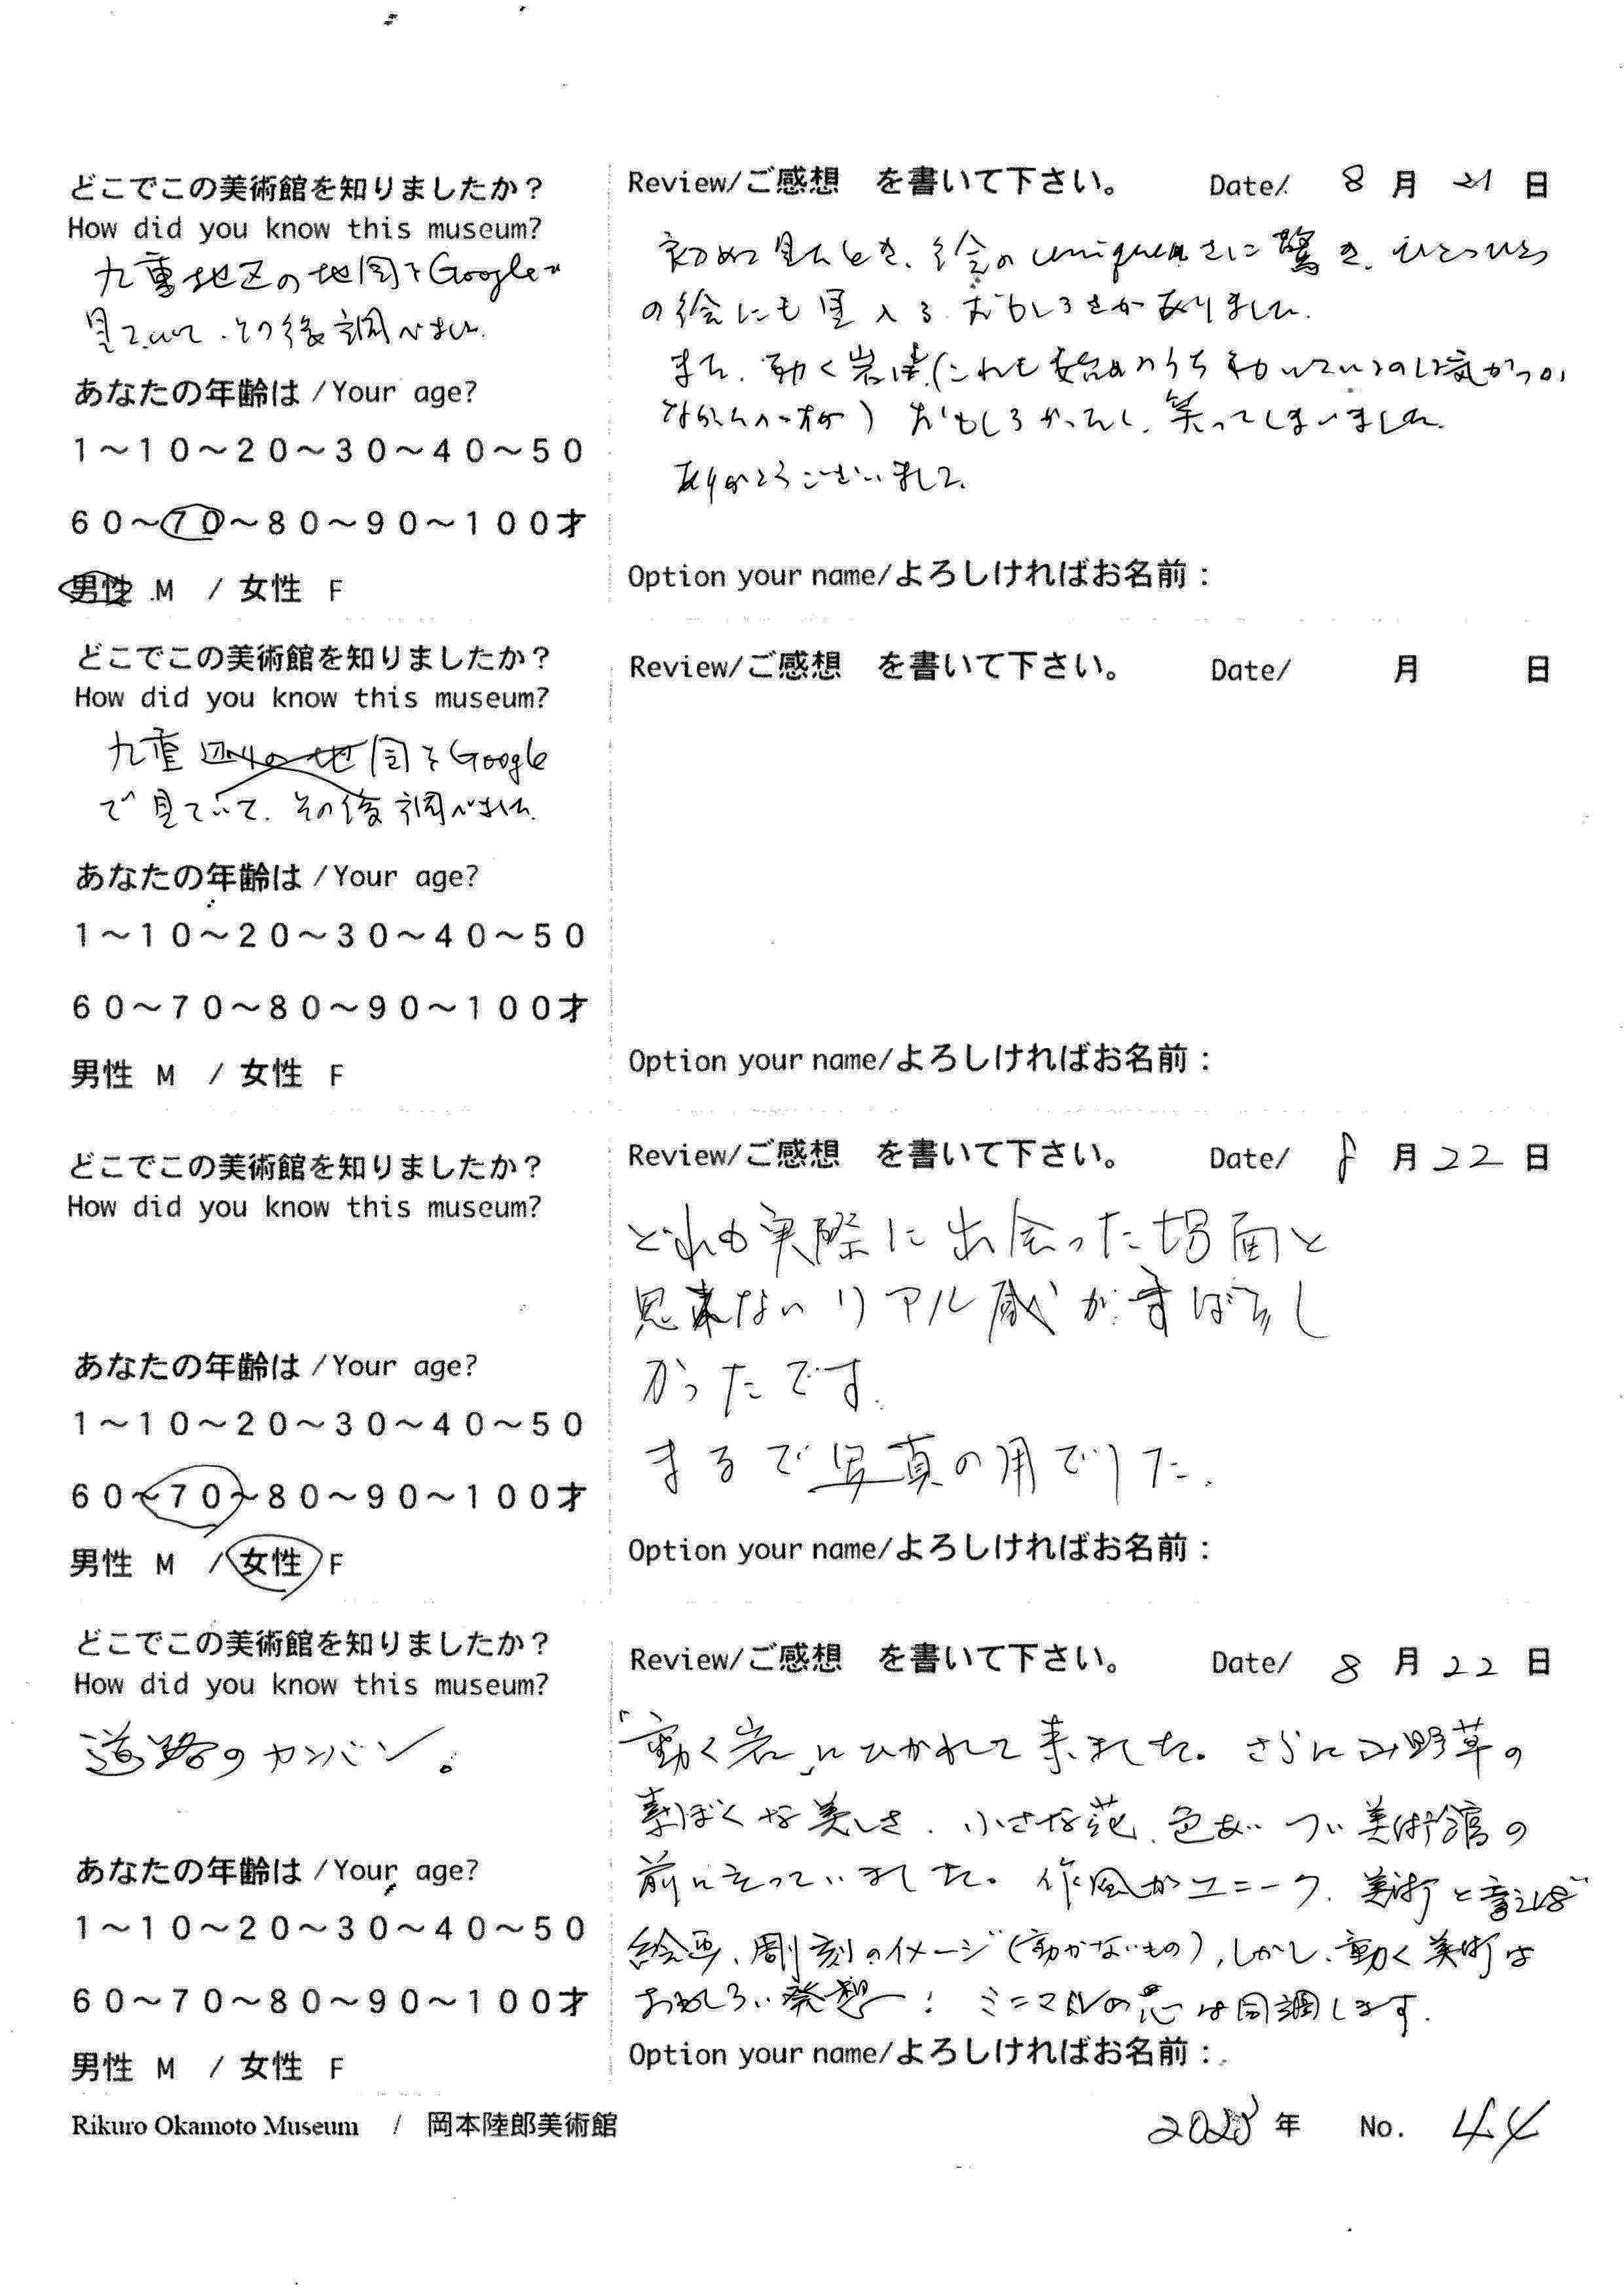 どこでこの美術館を知りましたか？
How did you know this museum?
九重地区の地図をGoogleで
見ていて、その後調べました。
あなたの年齢は /Your age?
1～10～20～30～40～50
60～70～80～90～100才
男性 M / 女性 F
Review/ご感想 を書いて下さい。 Date/ 8 月 21 日
初めて見たとき、絵のuniqueさに驚き、ひとつひとつ
の絵にも見入るおもしろさがありました。
また、動く岩達(これも始めのうち動いているのに気がつか
なかった) おもしろかったし、笑ってしまいました。
ありがとうございました。
Option your name/よろしければお名前：
どこでこの美術館を知りましたか？
How did you know this museum?
九重 辺りの地図をGoogle
で見ていて、その後調べました。
あなたの年齢は /Your age?
1～10～20～30～40～50
60～70～80～90～100才
男性 M / 女性 F
Review/ご感想 を書いて下さい。 Date/ 月 日
Option your name/よろしければお名前：
どこでこの美術館を知りましたか？
How did you know this museum?
あなたの年齢は /Your age?
1～10～20～30～40～50
60～70～80～90～100才
男性 M / 女性 F
Review/ご感想 を書いて下さい。 Date/ 8 月 22 日
どれも実際に出会った場面と
思えないリアル感がすばらし
かったです.
まるで写真の用でした.
Option your name/よろしければお名前：
どこでこの美術館を知りましたか？
How did you know this museum?
道路のカンバン。
あなたの年齢は /Your age?
1～10～20～30～40～50
60～70～80～90～100才
男性 M / 女性 F
Review/ご感想 を書いて下さい。 Date/ 8 月 22 日
「動く岩」にひかれて来ました。さらに山野草の
素ぼくな美しさ、小さな花、色あい つい美術館の
前にそっていました。作風がユニーク、美術と言えば
絵画、彫刻のイメージ(動かないもの),しかし、動く美術は
おもしろい発想ー! ミニマルの 思 は同調します.
Option your name/よろしければお名前：
Rikuro Okamoto Museum / 岡本陸郎美術館
年 No. 44